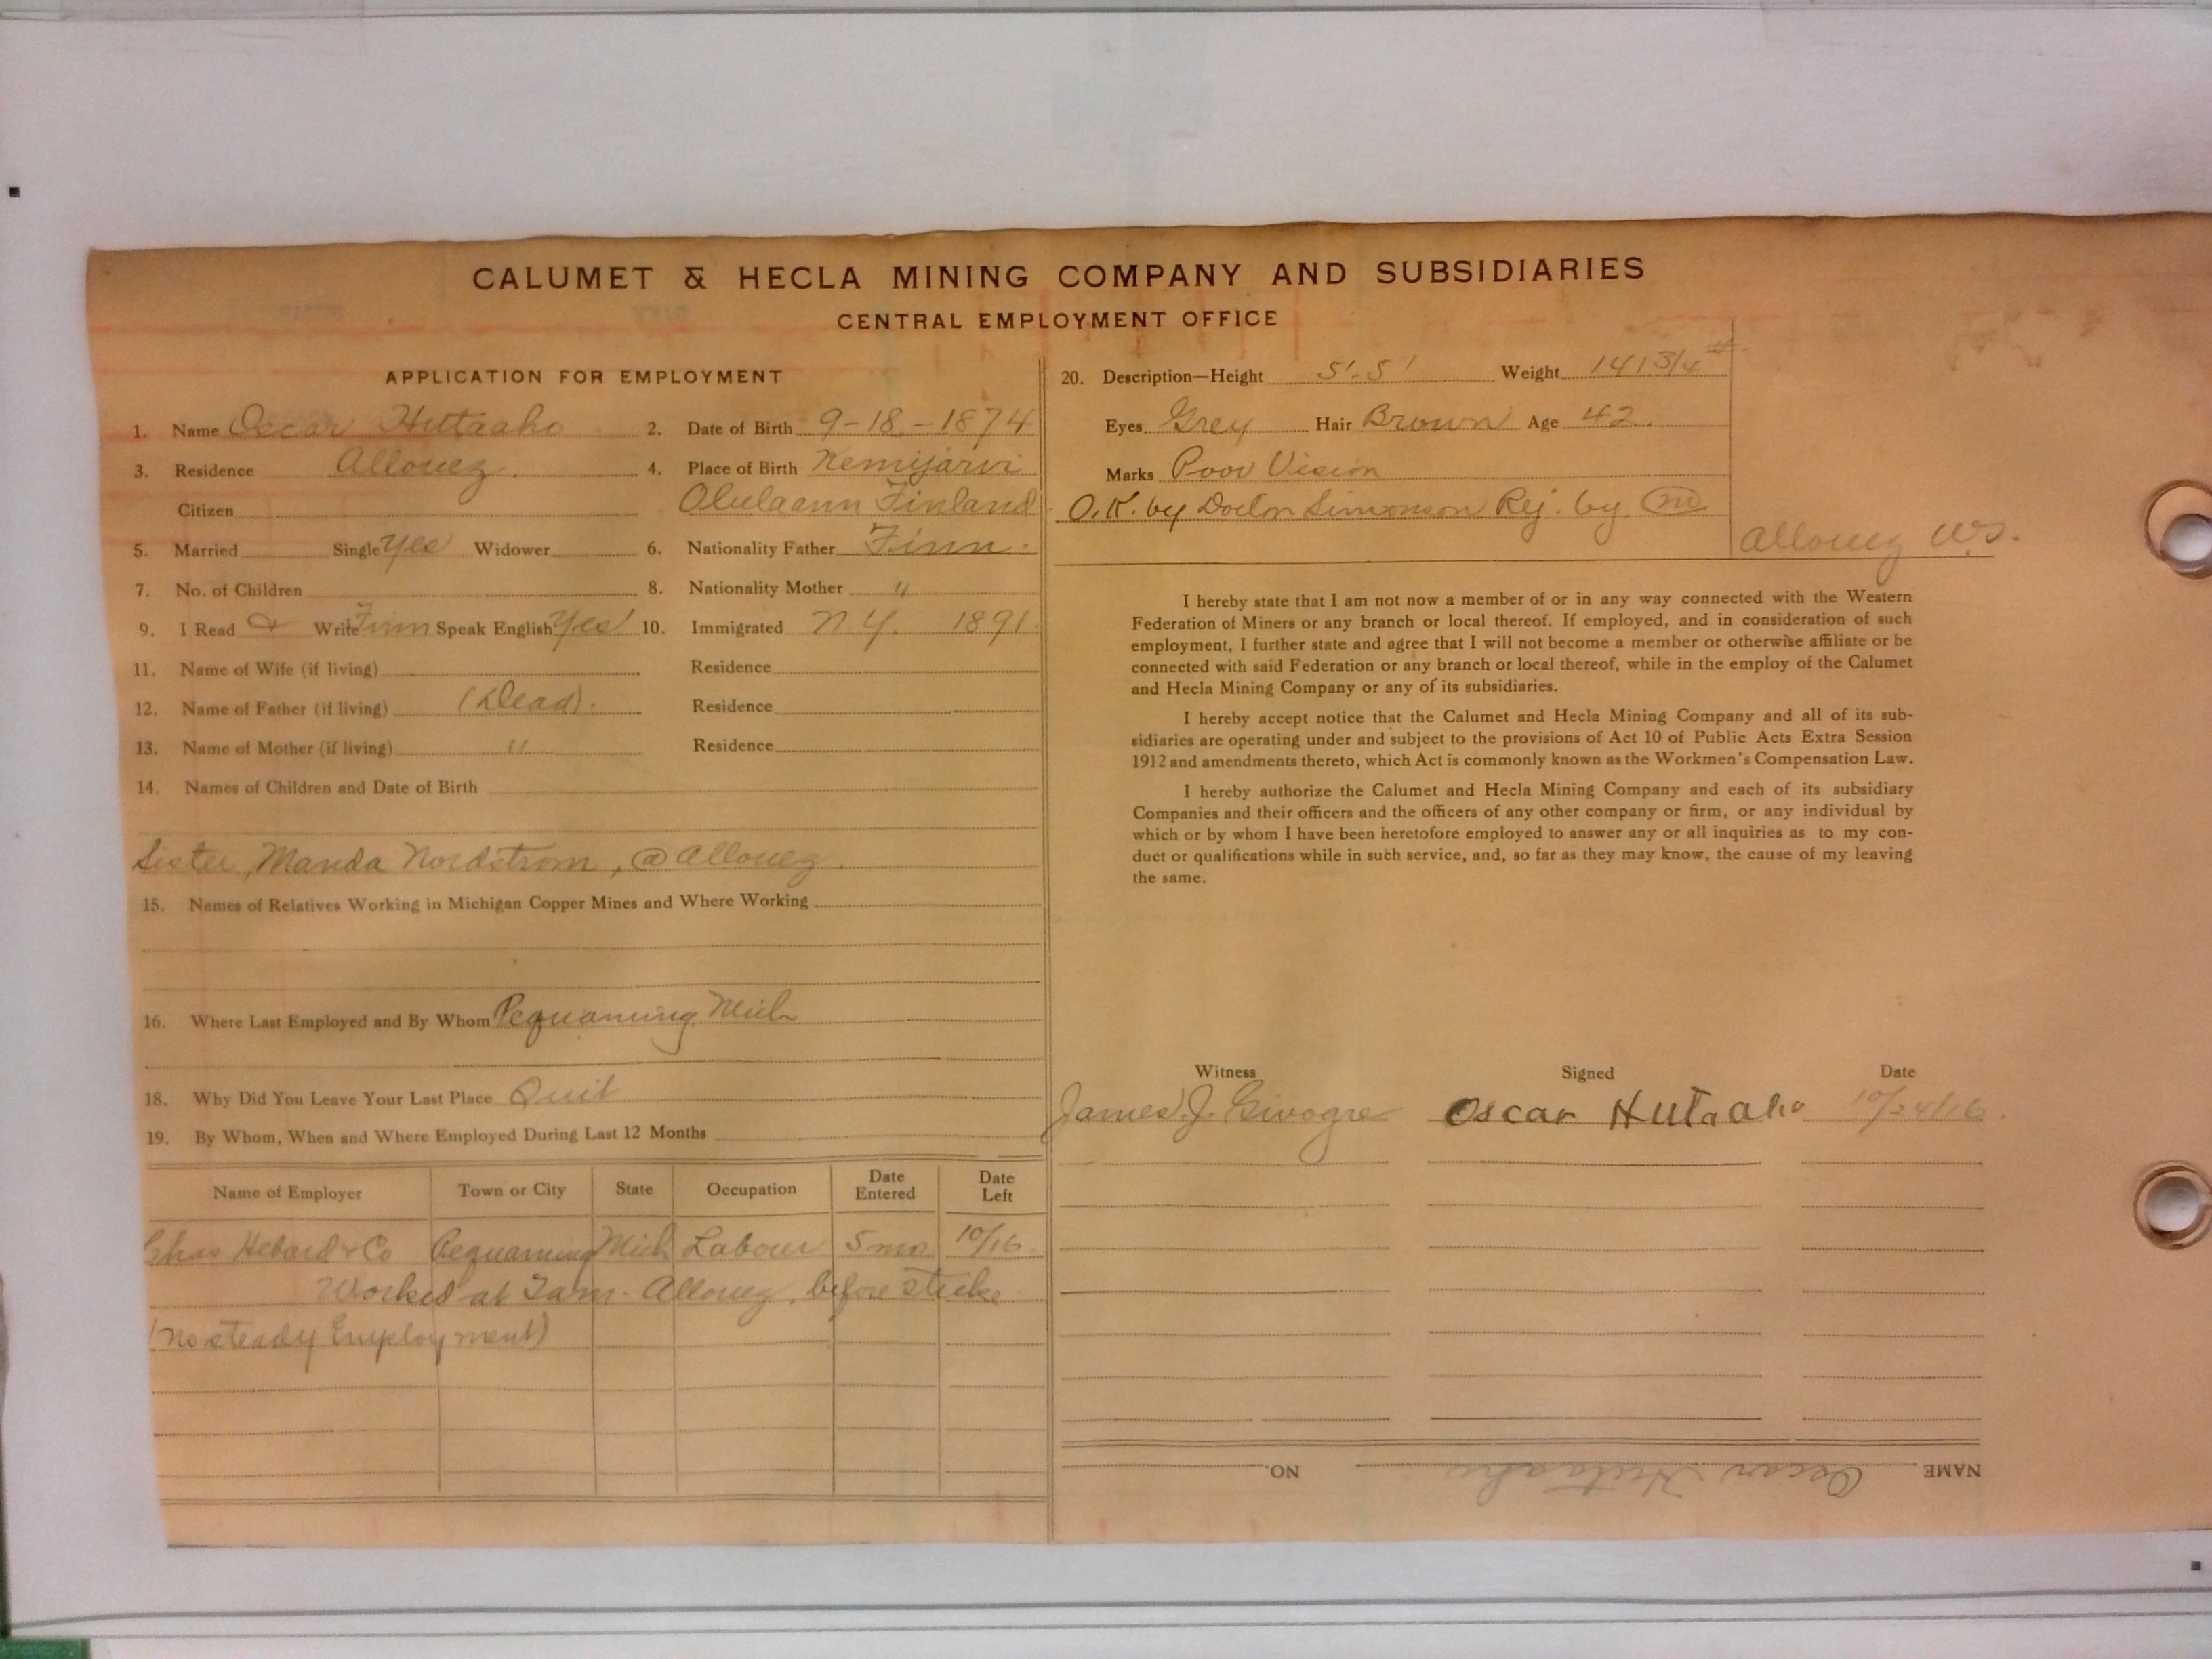 CALUMET & HECLA MINING COMPANY AND SUBSIDIARIES
CENTRAL EMPLOYMENT OFFICE
APPLICATION FOR EMPLOYMENT
1. Name Oscar Hutaaho 2. Date of Birth 9-18-1874
3. Residence Allouez 4. Place of Birth Kemijarvi
Citizen Olulaann Finland
5. Married Single Yes Widower 6. Nationality Father Finn.
7. No. of Children 8. Nationality Mother "
9. I Read & Write Finn Speak English Yes 10. Immigrated N.Y. 1891
11. Name of Wife (if living) Residence
12. Name of Father (if living) (Dead). Residence
13. Name of Mother (if living) " Residence
14. Names of Children and Date of Birth
Sister, Manda Nordstrom, @ Allouez.
15. Names of Relatives Working in Michigan Copper Mines and Where Working
16. Where Last Employed and By Whom Pequaming Mich
18. Why Did You Leave Your Last Place Quit
19. By Whom, When and Where Employed During Last 12 Months
Name of Employer Town or City State Occupation Date Entered Date Left
Chas Hebard & Co Pequaming Mich Labour 5 mo 10/16
Worked at Tam. Allouez, before strike
(no steady Employment)
20. Description—Height 5'.5' Weight 141 3/4 #
Eyes Grey Hair Brown Age 42.
Marks Poor Vision
O.K. by Doctor Simonson Rej. by
Allouez
I hereby state that I am not now a member of or in any way connected with the Western
Federation of Miners or any branch or local thereof. If employed, and in consideration of such
employment, I further state and agree that I will not become a member or otherwise affiliate or be
connected with said Federation or any branch or local thereof, while in the employ of the Calumet
and Hecla Mining Company or any of its subsidiaries.
I hereby accept notice that the Calumet and Hecla Mining Company and all of its sub-
sidiaries are operating under and subject to the provisions of Act 10 of Public Acts Extra Session
1912 and amendments thereto, which Act is commonly known as the Workmen's Compensation Law.
I hereby authorize the Calumet and Hecla Mining Company and each of its subsidiary
Companies and their officers and the officers of any other company or firm, or any individual by
which or by whom I have been heretofore employed to answer any or all inquiries as to my con-
duct or qualifications while in such service, and, so far as they may know, the cause of my leaving
the same.
Witness Signed Date
James J. Oscar Hutaaho 10/24/16.
NAME Oscar Hutaaho NO.